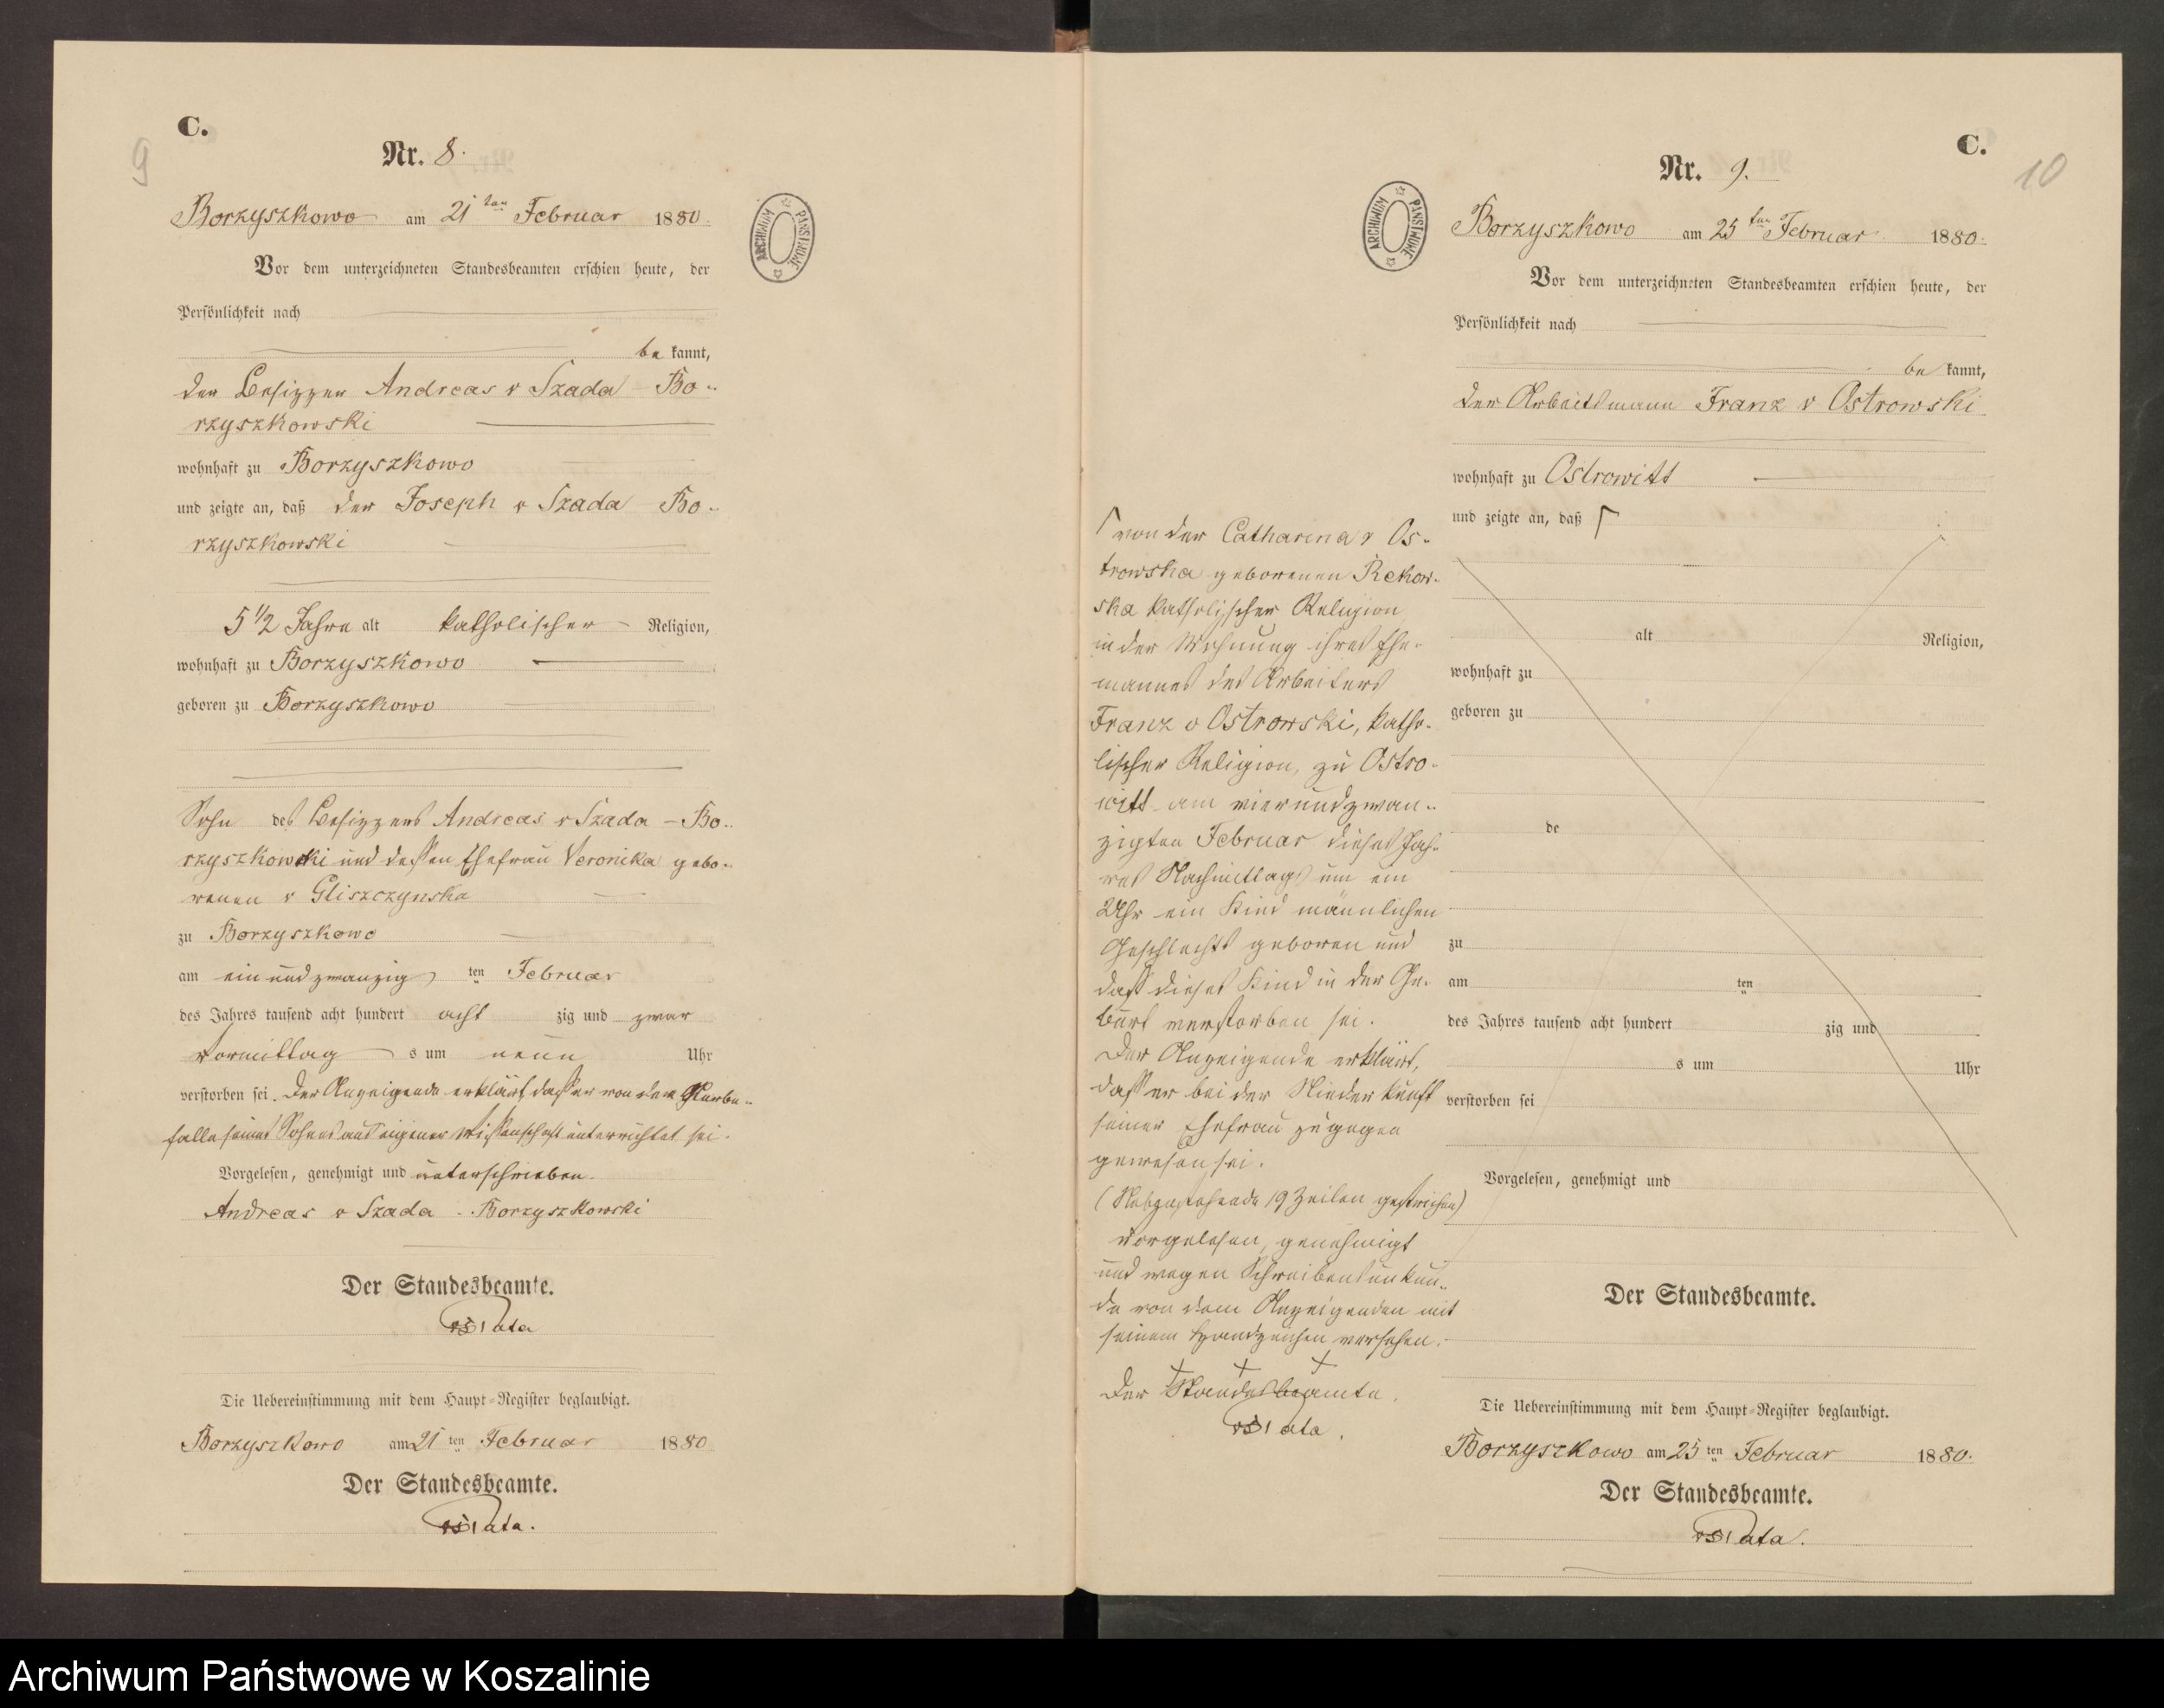 C.
9
Nr. 8.
Borzyszkowo am 21 ten Februar 1880.
Vor dem unterzeichneten Standesbeamten erschien heute, der
Persönlichkeit nach
be kannt,
der Besitzer Andreas v Szada - Bo-
rzyszkowski
wohnhaft zu Borzyszkowo
und zeigte an, daß der Joseph v Szada Bo-
rzyszkowski
5 1/2 Jahre alt katholischer Religion,
wohnhaft zu Borzyszkowo
geboren zu Borzyszkowo
Sohn des Besitzers Andreas v Szada - Bo-
rzyszkowski und dessen Ehefrau Veronika gebo-
renen v Gliszczynska
zu Borzyszkowo
am ein und zwanzig ten Februar
des Jahres tausend acht hundert acht zig und zwar
Vormittag s um neun Uhr
verstorben sei. Der Anzeigende erklärt, daß er von dem Sterbe-
falle seines Sohnes aus eigener Wissenschaft unterrichtet sei.
Vorgelesen, genehmigt und unterschrieben.
Andreas v Szada - Borzyszkowski
Der Standesbeamte.
Die Uebereinstimmung mit dem Haupt-Register beglaubigt.
Borzyszkowo am 21 ten Februar 1880
Der Standesbeamte.
ARCHIWUM PAŃSTWOWE
C.
10
Nr. 9.
ARCHIWUM PAŃSTWOWE
Borzyszkowo am 25 ten Februar 1880.
Vor dem unterzeichneten Standesbeamten erschien heute, der
Persönlichkeit nach
be kannt,
der Arbeitsmann Franz v Ostrowski
wohnhaft zu Ostrowitt
und zeigte an, daß ⌈
⌈ von der Catharina v Os-
trowska geborenen Rekow-
ska katholischer Religion
in der Wohnung ihres Ehe-
mannes des Arbeiters
Franz v Ostrowski, katho-
lischer Religion, zu Ostro-
witt am vierundzwan-
zigten Februar dieses Jah-
res Nachmittags um ein
Uhr ein Kind männlichen
Geschlechts geboren und
daß dieses Kind in der Ge-
burt verstorben sei.
Der Anzeigende erklärt,
daß er bei der Niederkunft
seiner Ehefrau zugegen
gewesen sei.
(Nebenstehende 19 Zeilen gestrichen)
Vorgelesen, genehmigt
und wegen Schreibensunkun-
de von dem Anzeigenden mit
seinem Handzeichen versehen.
+ + +
Der Standesbeamte.
alt Religion,
wohnhaft zu
geboren zu
de
zu
am ten
des Jahres tausend acht hundert zig und
s um Uhr
verstorben sei
Vorgelesen, genehmigt und
Der Standesbeamte.
Die Uebereinstimmung mit dem Haupt-Register beglaubigt.
Borzyszkowo am 25 ten Februar 1880.
Der Standesbeamte.
Archiwum Państwowe w Koszalinie